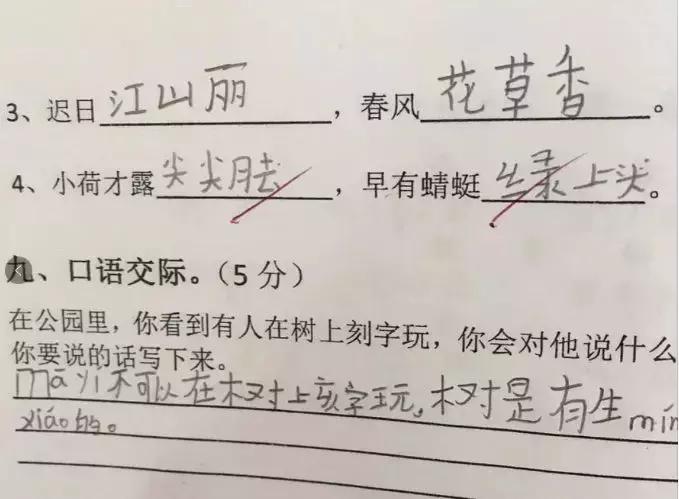 3、迟日江山丽，春风花草香。
4、小荷才露尖尖脚，早有蜻蜓绿上尖。
九、口语交际。（5分）
在公园里，你看到有人在树上刻字玩，你会对他说什么
你要说的话写下来。
mā yi不可以在树上刻字玩，树是有生min
xiáo的。